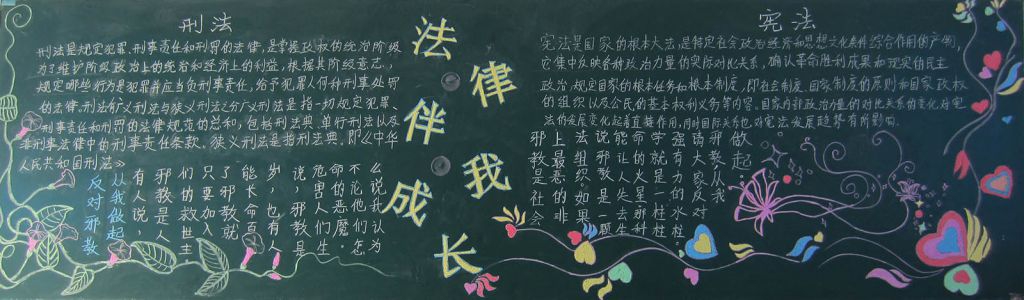 刑法
刑法是规定犯罪、刑事责任和刑罚的法律,是掌握政权的统治阶级
为了维护阶级政治上的统治和经济上的利益,根据其阶级意志,
规定哪些行为是犯罪并应当负刑事责任,给予犯罪人何种刑事处罚
的法律,刑法有广义刑法与狭义刑法之分广义刑法是指一切规定犯罪、
刑事责任和刑罚的法律规范的总和,包括刑法典、单行刑法以及
非刑事法律中的刑事责任条款。狭义刑法是指刑法典,即《中华
人民共和国刑法》
从我做起
反对邪教
有人说,
邪教是人
们的救世主
只要加入
了邪教就
能长命百
岁,也有人
说,邪教
是危害人们生
命的恶魔.
不论他们怎
么说我认为
法律伴我成长
宪法
宪法是国家的根本大法,是特定社会政治经济和思想文化条件综合作用的产物,
它集中反映各种政治力量的实际对比关系,确认革命胜利成果和现实的民主
政治,规定国家的根本任务和根本制度,即社会制度、国家制度的原则和国家政权
的组织以及公民的基本权利义务等内容。国家内部政治力量的对比关系的变化对宪
法的发展变化起着直接作用,同时国际关系也对宪法发展趋势有所影响。
邪教是社会
上最恶的非
法组织.如果
说邪教是一
能让人失去生
命的火星那
学就是一种
强有力的水柱
请大家
邪教反对
做起从我